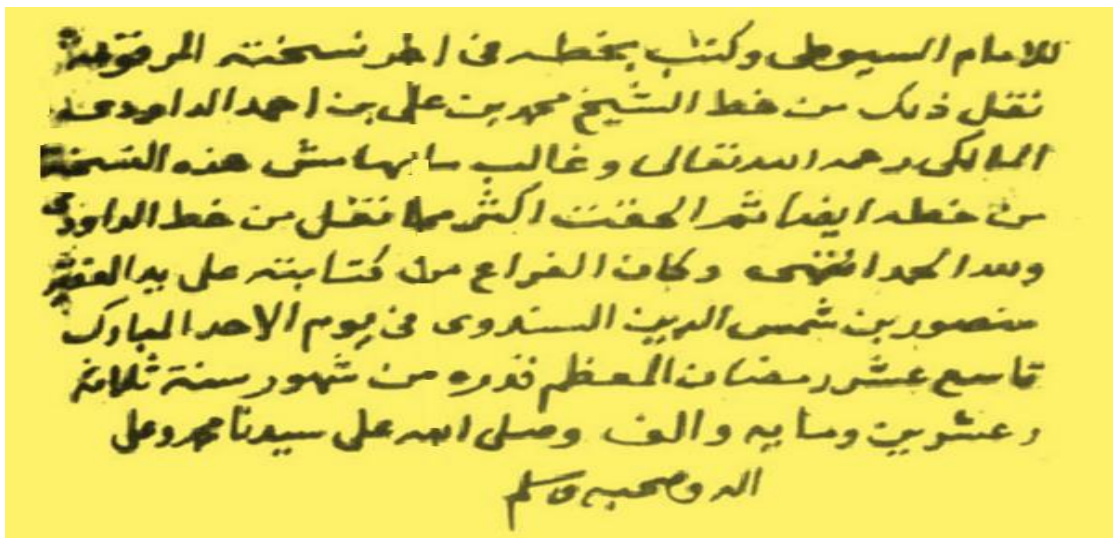 للامام السيوطى وكتب بخطه فى اخر نسخته المرقومة
نقل ذلك من خط الشيخ محمد بن على بن احمد الداودى
المالكى رحمه الله تعالى وغالب ما بهامش هذه النسخة
من خطه ايضا ثم الحقت اكثر مما نقل من خط الداودى
ولله الحمد انتهى وكان الفراغ من كتابته على يد الفقير
منصور بن شمس الدين السندوى فى يوم الاحد المبارك
تاسع عشر رمضان المعظم قدره من شهور سنة ثلاثة
وعشرين ومايه والف وصلى الله على سيدنا محمد وعلى
اله وصحبه وسلم